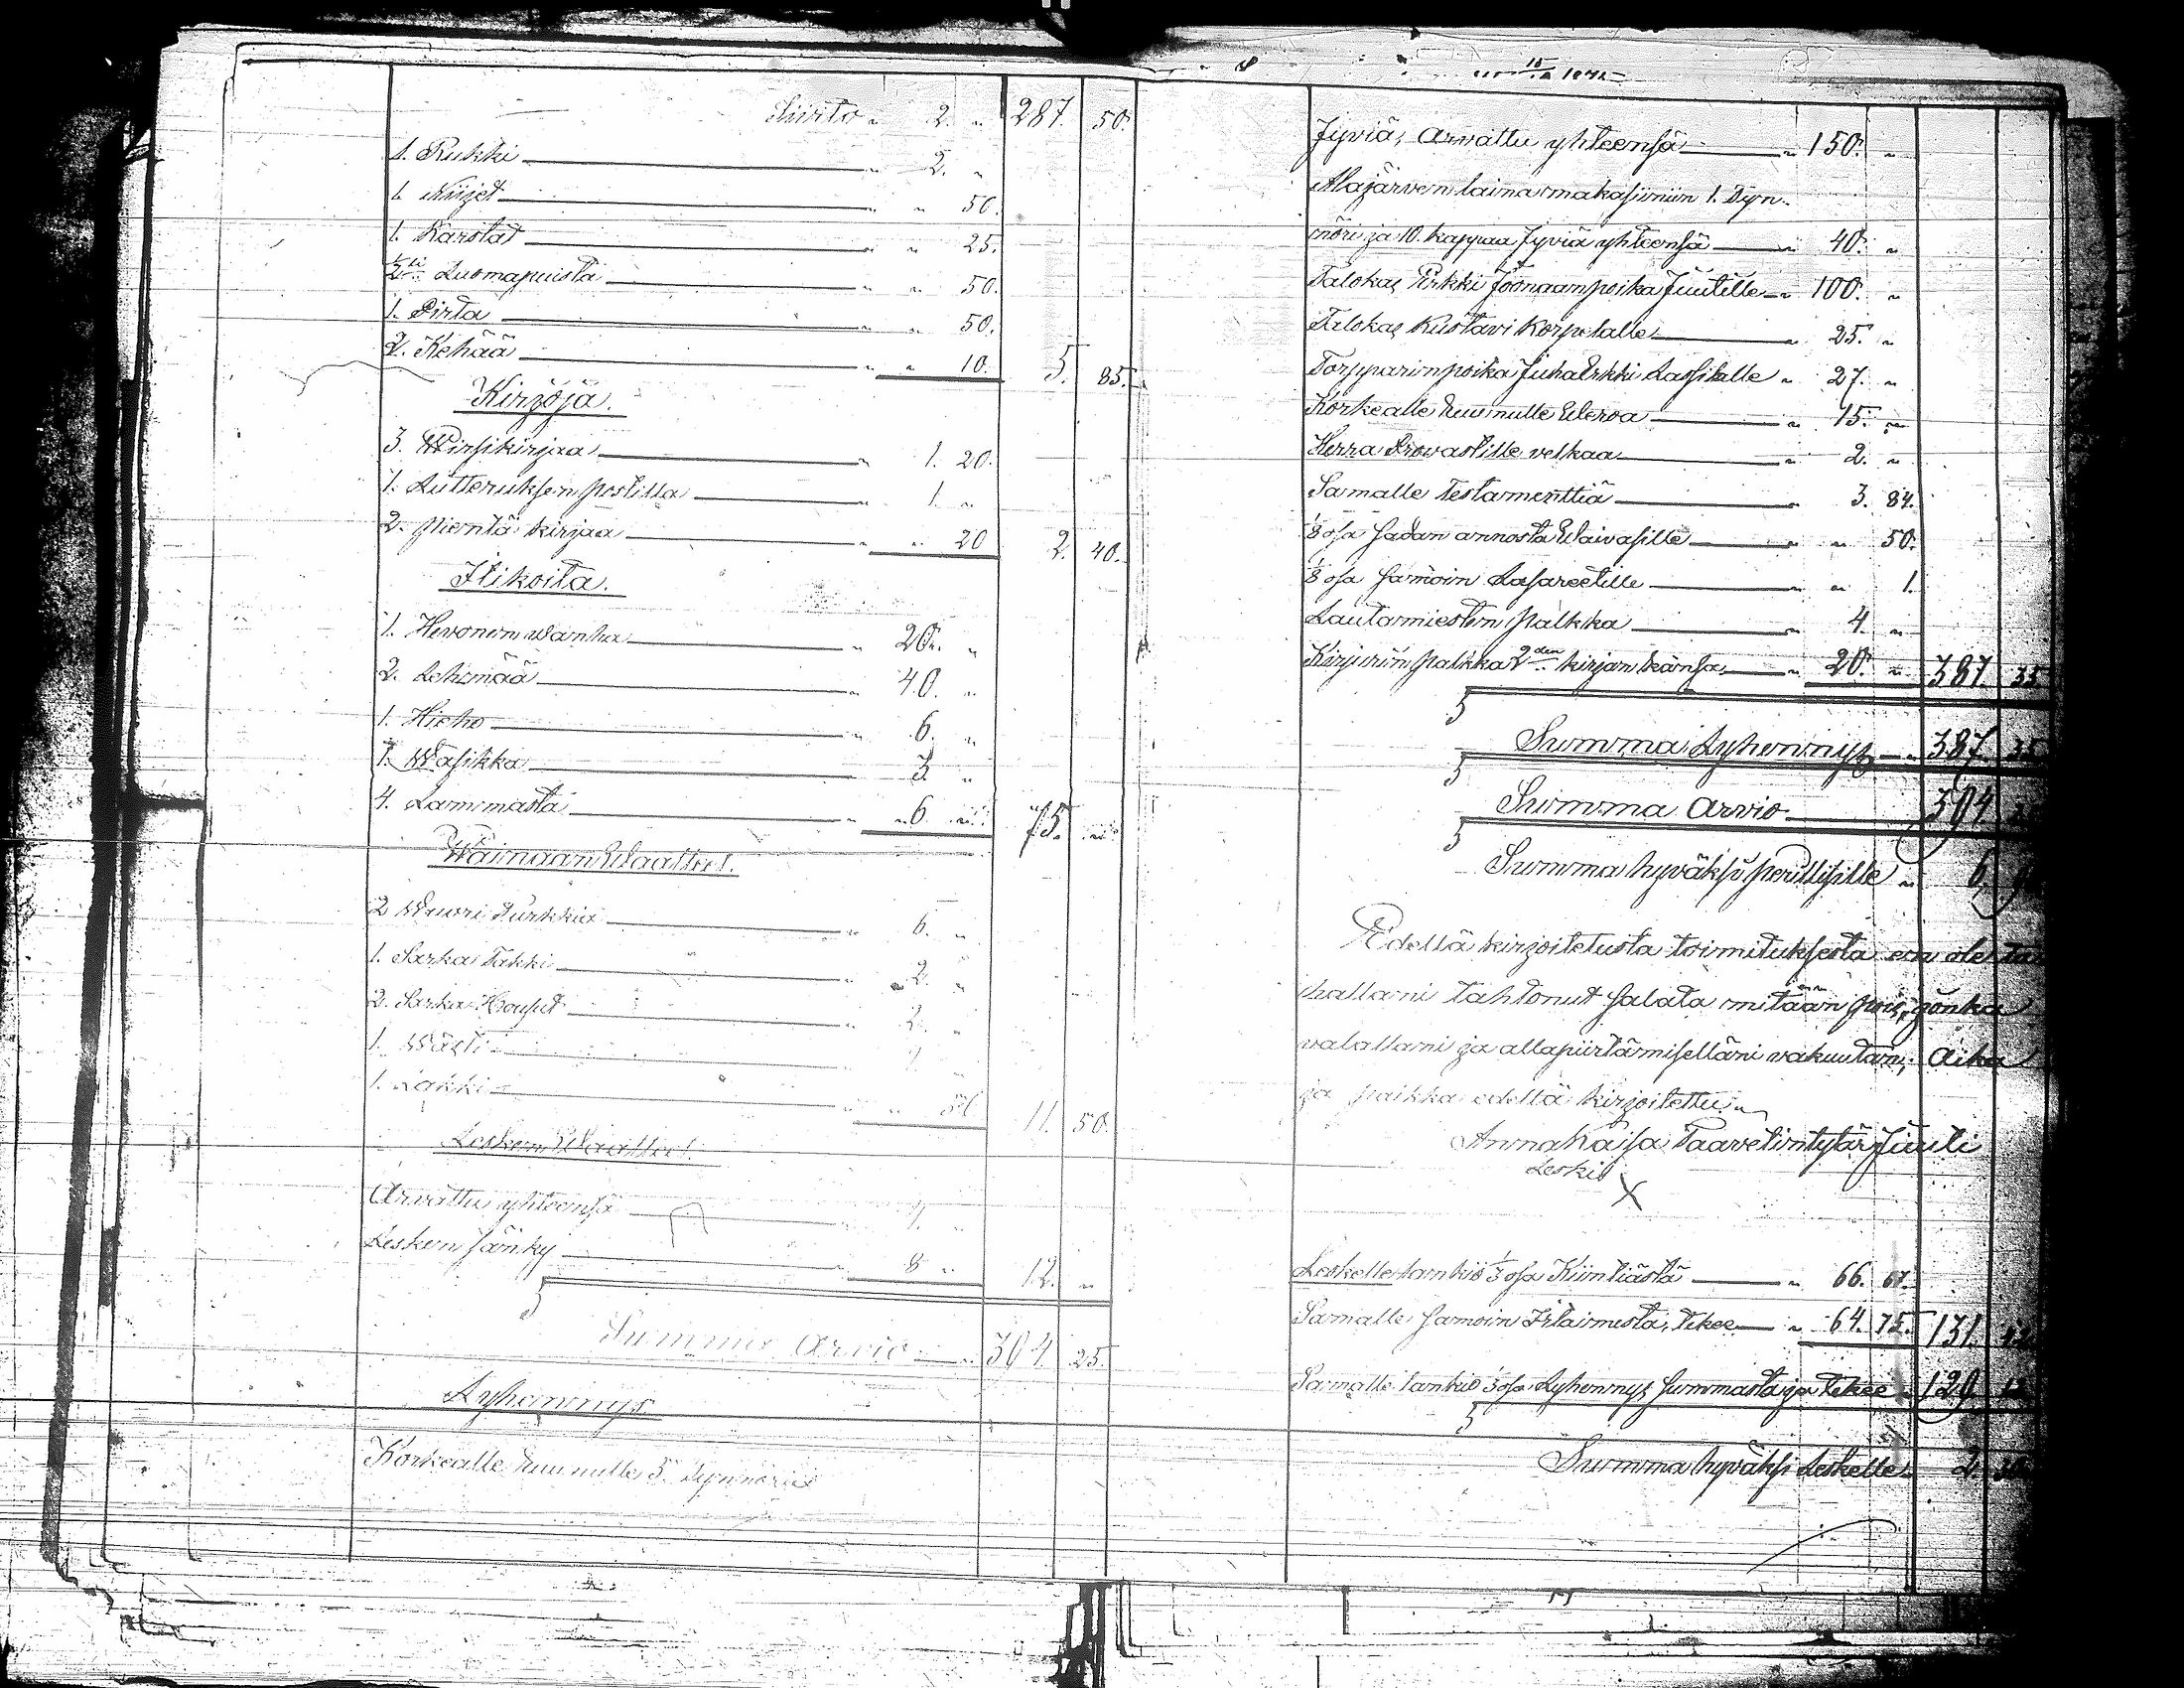 Siirto „ 2. „ 287. 50.
1. Rukki „ 2. „
1. Niijet „ „ 50.
1. Karstat „ „ 25.
2si Luomapuista „ „ 50.
1. Pirta „ „ 50.
2. Kehää „ „ 10. 5. 85.
Kirjoja.
3. Wirsikirjaa „ 1. 20.
1. Lutteruksen postilla „ 1. „
2. pientä kirjaa „ „ 20 2. 40.
Itikoita.
1. Hevonen wanha „ 20. „
2. Lehmää „ 40. „
1. Hieho „ 6. „
1. Wasikka „ 3 „
4. Lammasta „ 6. „ 75. „
Wainaan Waatteet.
2 Wuori Turkkia „ 6. „
1. Sarka Takki „ 2. „
2. Sarka Housut „ 2. „
1. Wästi „
1. Lakki „ „ 50 11. 50.
Lesken Waatteet.
Arwattu yhteensä „ 4. „
Lesken sänky „ 8 „ 12. „
Summa Arvio „ 394. 25.
Lyhennys
Korkealle kruunulle 5. tynnöriä
1872
Jyviä, Arvattu yhteensä „ 150. „
Alajärven lainamakasiiniin 1. Tyn-
nöri ja 10. kappaa Jyviä yhteensä „ 40. „
Talokas Erkki Joonaanpoika Juutille „ 100. „
Talokas Kustavi Korpelalle „ 25. „
Torpparinpoika Juha Erkki Lassilalle „ 27. „
Korkealle kruunulle Weroa „ 15. „
Herra Prowastille velkaa „ 2. „
Samalle Testamenttiä „ 3. 84.
1/8 osa sadan annosta Waivasille „ „ 50.
1/8 osa samoin Lasareetille „ „ 1.
Lautamiesten palkka „ 4. „
Kirjurin palkka 2den kirjan kansa „ 20. „ 387. 35
Summa Lyhennys „ 387. 35
Summa Arvio 394
Summa hyväksi perillisille „ 6.
Edellä kirjoitetusta toimituksesta en ole ta
hallani tahtonut salata mitään pois, jonka
valallani ja allapiirtämiselläni vakuutan; Aika
ja paikka edellä kirjoitettu.
Anna Kaisa Taavetintytär Juuti
Leski X
Leskelle lankio 1/3 osa Kiintiästä „ 66. 67.
Samalle samoin Irtaimesta, tekee „ 64. 75. 131. 42
Samalle lankio 1/3 osa Lyhennys summasta ja tekee „ 129.
Summa hyväksi Leskelle „ 2.